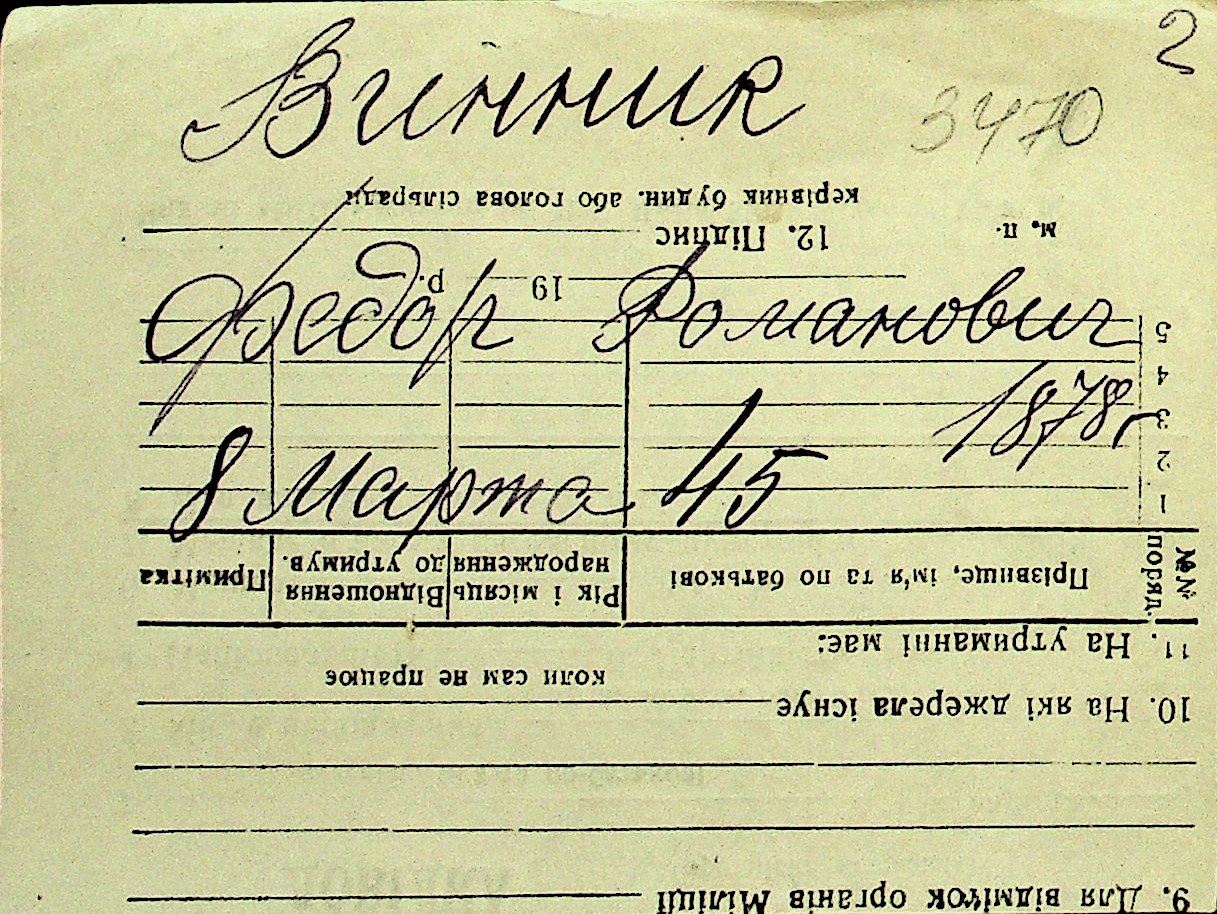 2
Винник
3470
керівник будин. або голова сільради
12. Підпис
м. п.
19
р.
Федор Романович
1878 г
8 Марта 45
5
4
3
2
1
№№ поряд.
Прізвище, ім'я та по батькові
Рік і місяць народження
Відношення до утримув.
Примітка
11. На утриманні має:
коли сам не працює
10. На які джерела існує
9. Для відміток органів Міліції